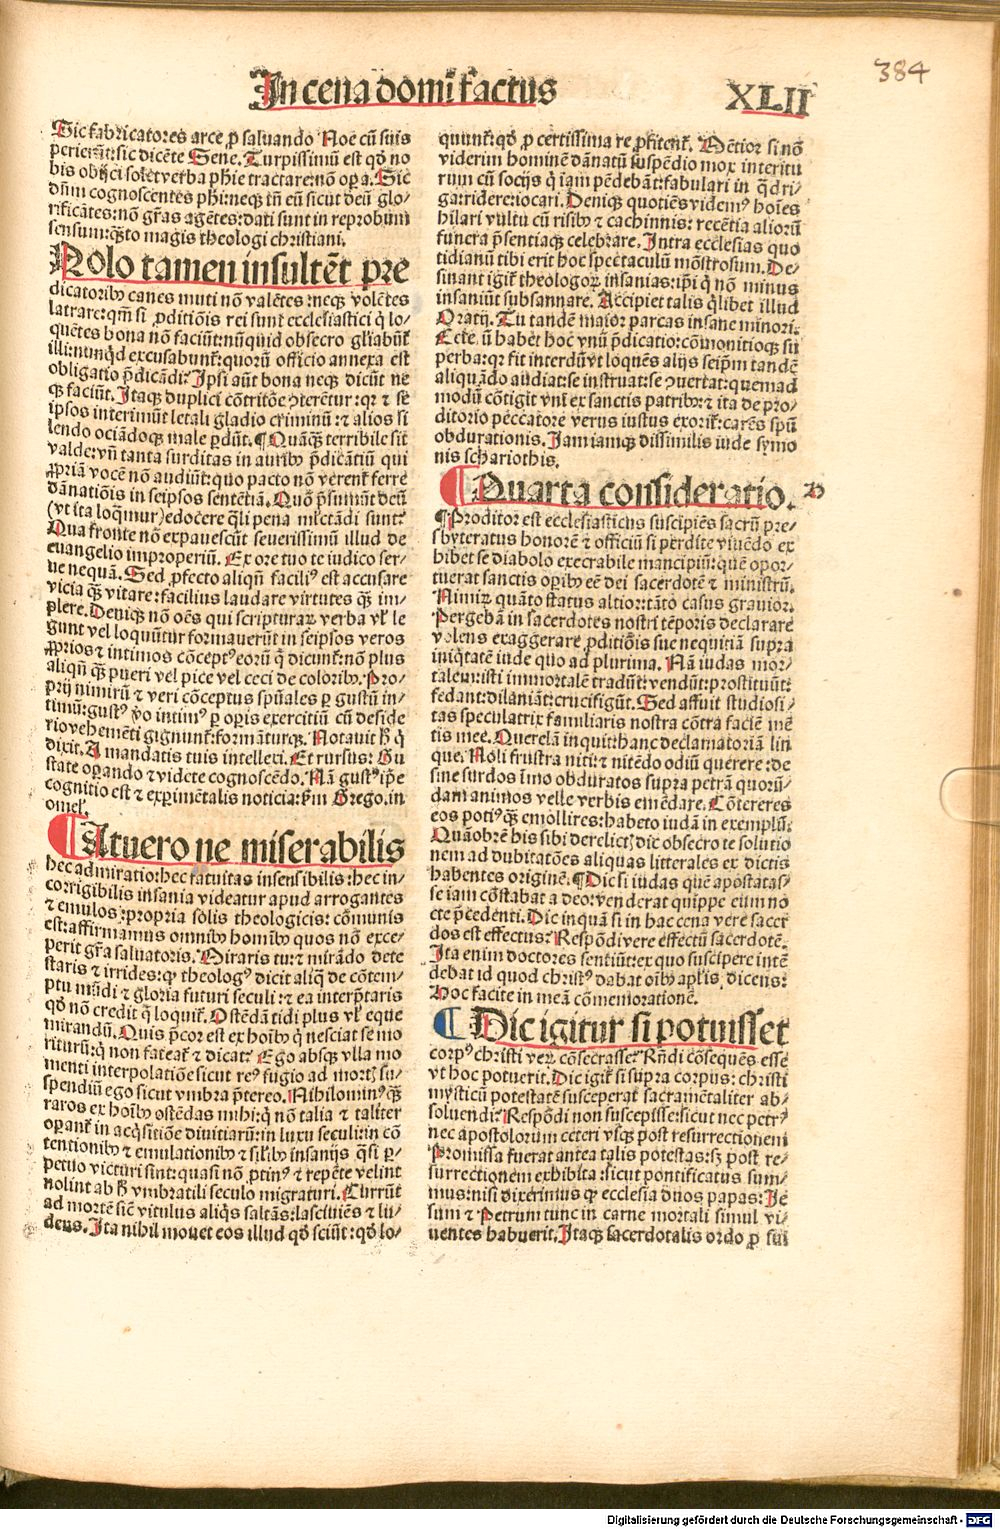 In cena domĩ factus
XLII
384
Sic fabricatores arce ꝓ saluando Noe cũ suis
perierũt: sic dicẽte Sene. Turpissimũ est qđ no
bis obijci solet verba phie tractare: nõ oꝑa. Sic
dñm cognoscentes phi: neqꝫ tñ eũ sicut deũ glo⸗
rificãtes: nõ grãs agẽtes: dati sunt in reprobum
sensum: q̃sto magis theologi christiani.
Nolo tamen insultẽt pre
dicatoribꝰ canes muti nõ valẽtes: neqꝫ volẽtes
latrare: qm̃ si ꝓditiõis rei sunt ecclesiastici q̇ lo⸗
quẽtes bona nõ faciũt: nũquid obsecro gl̃iabũt̃
illi: nunq̇d excusabunt̃: quorũ officio annexa est
obligatio p̃dicãdi? Ipsi aũt bona neqꝫ dicũt ne
qꝫ faciũt. Itaqꝫ duplici cõtritõe ↄterẽtur: qꝛ ⁊ se
ipsos interimũt letali gladio criminũ: ⁊ alios si
lendo ociãdoqꝫ male ꝑdũt. ¶ Quãqꝫ terribile sit
valde: vñ tanta surditas in auribꝰ p̃dicãtiũ qui
ꝓpriã vocẽ nõ audiũt: quo pacto nõ verent̃ ferre
dãnatiõis in seipsos sentẽtiã. Quõ p̃sumũt deũ
(vt ita loq̃mur) edocere q̃li pena mẽctãdi sunt?
Qua fronte nõ expauescũt seuerissimũ illud de
euangelio improperiũ. Ex ore tuo te iudico ser⸗
ue nequã. Sed ꝓfecto aliqñ faciliꝰ est accusare
vicia qꝫ vitare: facilius laudare virtutes qꝫ im⸗
plere. Deniqꝫ nõ oẽs qui scripturaꝝ verba vl̃ le
gunt vel loquũtur formauerũt in seipsos veros
ꝓprios ⁊ intimos cõceptꝰ eorũ q̃ dicunt̃: nõ plus
aliqñ qꝫ pueri vel pice vel ceci de coloribꝰ. Pro⸗
prij nimirũ ⁊ veri cõceptus spũales ꝑ gustũ in⸗
timũ: gustꝰ ṽo intimꝰ ꝑ opis exercitiũ cũ deside
rio vehemẽti gignunt̃: formãturqꝫ. Notauit ħ q̇
dixit. A mandatis tuis intellexi. Et rursus: Gu
state oꝑando ⁊ videte cognoscẽdo. Nã gustꝰ ip̃e
cognitio est ⁊ experimẽtalis noticia: ẽm Grego. in
omel̃.
¶ At vero ne miserabilis
hec admiratio: hec fatuitas insensibilis: hec in⸗
corrigibilis insania videatur apud arrogantes
⁊ emulos: propria solis theologicis: cõmunis
est: affirmamus omnibꝰ homĩbꝰ quos nõ exce⸗
perit gr̃a saluatoris. Miraris tu: ⁊ mirãdo dete
staris ⁊ irrides: qꝙ theologꝰ dicit aliq̃ de cõtem⸗
ptu mũdi ⁊ gloria futuri seculi: ⁊ ea interp̃taris
qđ nõ credit q̃ loquit̃. Ostẽdã tidi plus vl̃ eque
mirandũ. Quis p̃cor est ex hoĩbꝰ q̇ nesciat se mo
riturũ: q̇ non fateat̃ ⁊ dicat? Ego absqꝫ vlla mo
menti interpolatiõe sicut reꝰ fugio ad mortẽ su⸗
spendiũ ego sicut vmbra p̃tereo. Nihilominꝰ qꝫ
raros ex hoĩbꝰ ostẽdas mihi: q̇ nõ talia ⁊ taliter
oꝑant̃ in acq̇sitiõe diuitiarũ: in luxu seculi: in cõ
tentionibꝰ ⁊ emulationibꝰ ⁊ sil̃ibꝰ insanijs q̃si ꝑ⸗
petuo victuri sint: quasi nõ ꝓtinꝰ ⁊ repẽte velint
nolint ab ħ vmbratili seculo migraturi. Currũt
ad mortẽ sicẽ vitulus aliq̃s saltãs: lasciuiẽs ⁊ lu⸗
dens. Ita nihil mouet eos illud qđ sciũt: qđ lo⸗
quunt̃: qđ ꝓ certissima re ꝓfitent̃. Mẽtior si nõ
viderim hominẽ dãnatũ suspẽdio mox interitu
rum cũ socijs q̇ iam pẽdebãt: fabulari in q̃dri⸗
ga: ridere: iocari. Deniqꝫ quotiẽs videmꝰ hoĩes
hilari vultu cũ risibꝰ ⁊ cachinnis: recẽtia aliorũ
funera p̃sentiaqꝫ celebrare. Intra ecclesias quo
tidianũ tibi erit hoc spectaculũ mõstrosum. De⸗
sinant igit̃ theologoꝝ insanias: ip̃i q̇ nõ minus
insaniũt subsannare. Accipiet talis q̇libet illud
Oratij. Tu tandẽ maior parcas insane minori.
Ecce, ũ habet hoc vnũ p̃dicatio: cõmonitioqꝫ su
perba: qꝛ fit interdũ vt loquẽs alijs seip̃m tandẽ
aliquãdo audiat: se instruat: se ↄuertat: quemad
modũ cõtigit vni ex sanctis patribꝰ: ⁊ ita de pro⸗
ditorio peccatore verus iustus exorit̃: carẽs spũ
obdurationis. Iamiamqꝫ dissimilis iude symo
nis schariothis.
¶ Quarta consideratio.
¶ Proditor est ecclesiasticus suscipiẽs sacrũ pre⸗
sbyteratus honorẽ ⁊ officiũ si perdite viuẽdo ex
hibet se diabolo execrabile mancipiũ: quẽ opor⸗
tuerat sanctis oꝑibꝰ eẽ dei sacerdotẽ ⁊ ministrũ.
Nimiꝝ quãto status altior: tãto casus grauior.
Pergebã in sacerdotes nostri tẽporis declarare
volens exaggerare ꝓditiõis sue nequitiã supra
iniq̇tatẽ iude quo ad plurima. Nã iudas mor⸗
talem: isti immortalẽ tradũt: vendũt: prostituũt:
fedant: dilaniãt: crucifigũt. Sed affuit studiosi⸗
tas speculatrix familiaris nostra cõtra faciẽ mẽ
tis mee. Querelã inquit: hanc declamatoriã lin
que. Noli frustra niti: ⁊ nitẽdo odiũ querere: de
sine surdos ĩmo obduratos supra petrã quorũ⸗
dam animos velle verbis emẽdare. Cõtereres
eos potiꝰ qꝫ emollires: habeto iudã in exemplũ.
Quãobrẽ his sibi derelictꝭ dic obsecro te solutio
nem ad dubitatões aliquas litterales ex dictis
habentes originẽ. ¶ Dic si iudas quẽ apostatas⸗
se iam cõstabat a deo: vendẽrat quippe eum no
cte p̃cedenti. Dic inquã si in hac cena vere sacer
dos est effectus? Respõdi vere effectũ sacerdotẽ.
Ita enim doctores sentiũt: ex quo suscipere intẽ
debat id quod christꝰ dabat oĩbꝰ apl̃is, dicens:
Hoc facite in meã cõmemorationẽ.
¶ Dic igitur si potuisset
corpꝰ christi verũ cõsecrasse? Rñdi cõsequẽs esse
vt hoc potuerit. Dic igit̃ si supra corpus: christi
mysticũ potestatẽ susceperat sacramẽtaliter ab⸗
soluendi? Respõdi non suscepisse: sicut nec petrꝰ
nec apostolorum ceteri vsqꝫ post resurrectionem
Promissa fuerat antea talis potestas: sꝫ post re⸗
surrectionem exhibita: sicut pontificatus sum⸗
mus: nisi dixerimus qꝙ ecclesia duos papas: Ie
sum ⁊ Petrum tunc in carne mortali simul vi⸗
uentes habuerit. Itaqꝫ sacerdotalis ordo ꝓ sui
Digitalisierung gefördert durch die Deutsche Forschungsgemeinschaft - DFG